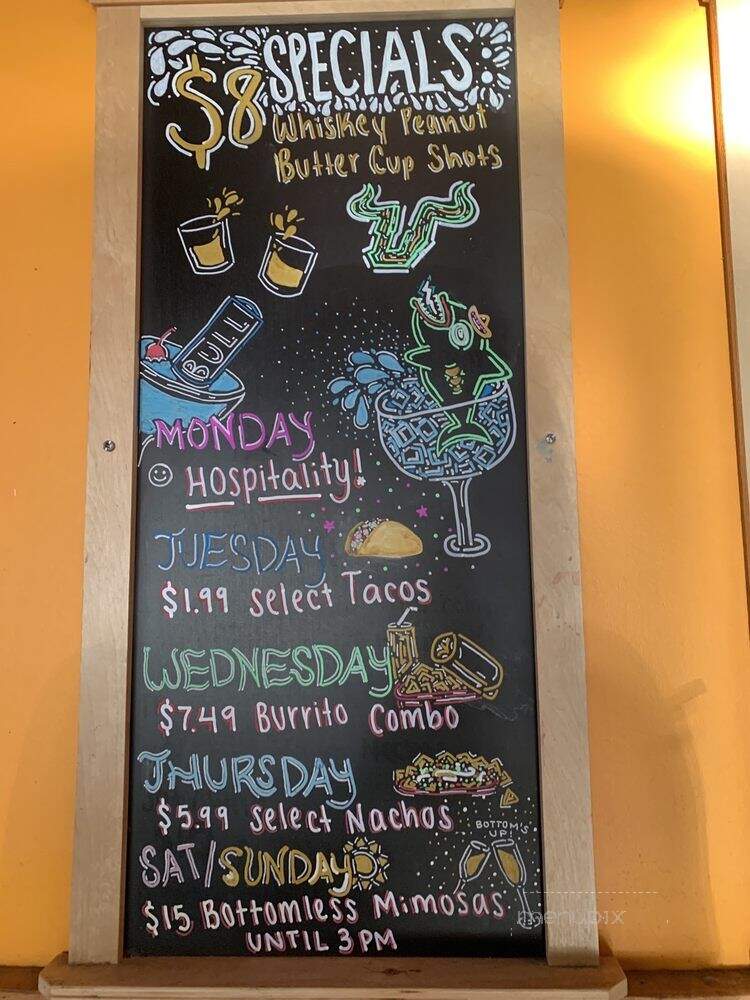 $8 SPECIALS:
Whiskey Peanut
Butter Cup Shots
BULL
MONDAY
HOspitality!
TUESDAY
$1.99 select Tacos
WEDNESDAY
$7.49 Burrito Combo
THURSDAY
$5.99 select Nachos
BOTTOM'S
UP!
SAT/SUNDAY
$15 Bottomless Mimosas
UNTIL 3PM
menupix